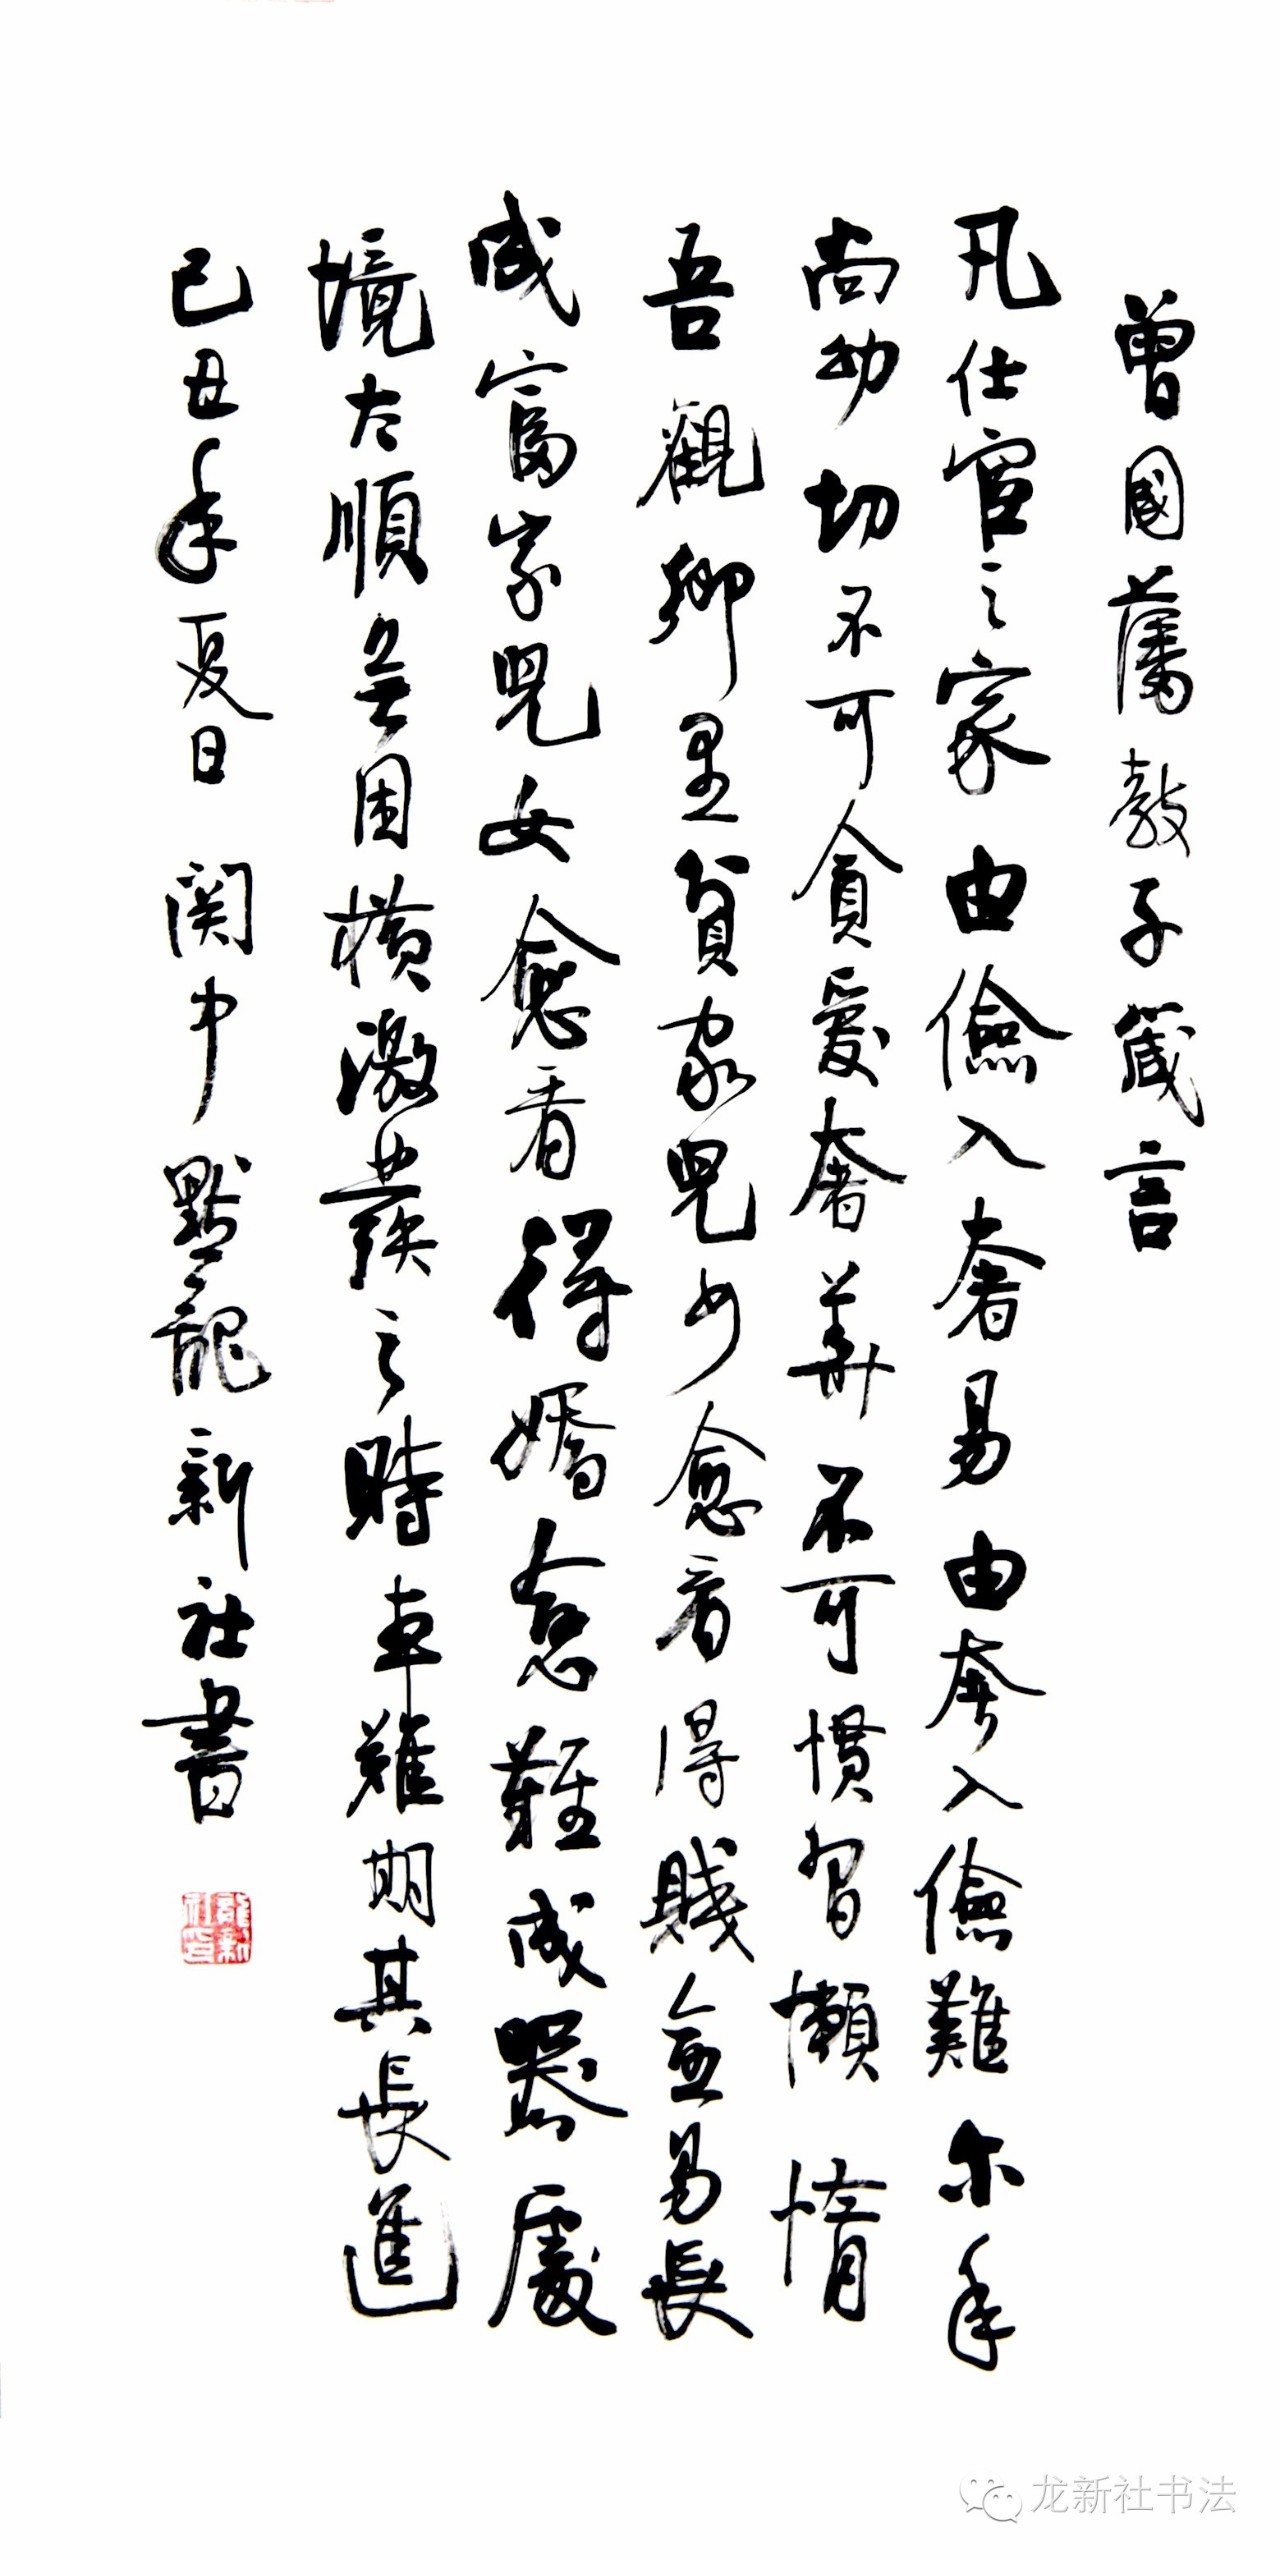 曾國藩教子箴言
凡仕宦之家由儉入奢易由奢入儉難尔年
尚幼切不可貪爱奢華不可惯習懶惰
吾觀鄉里貧家兒女愈看得賤愈易長
成富家兒女愈看得嬌愈難成器處
境太順無困橫激發之時車難期其長進
己丑年夏日 関中 龍新社書
龍新社印
龙新社书法